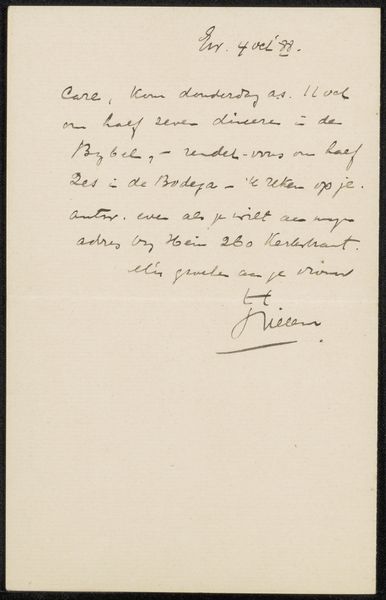 Ew. 4 oct 88.
Care, Kom donderdag a.s. 11 oct
om half seven dineren in de
Bybel, – rendez-vous om half
zes in de Bodega – 'k reken op je.
antw. even als je wilt aan mijn
adres by Hein 260 Kerkstraat.
Met groeten aan je vrouw
Willem